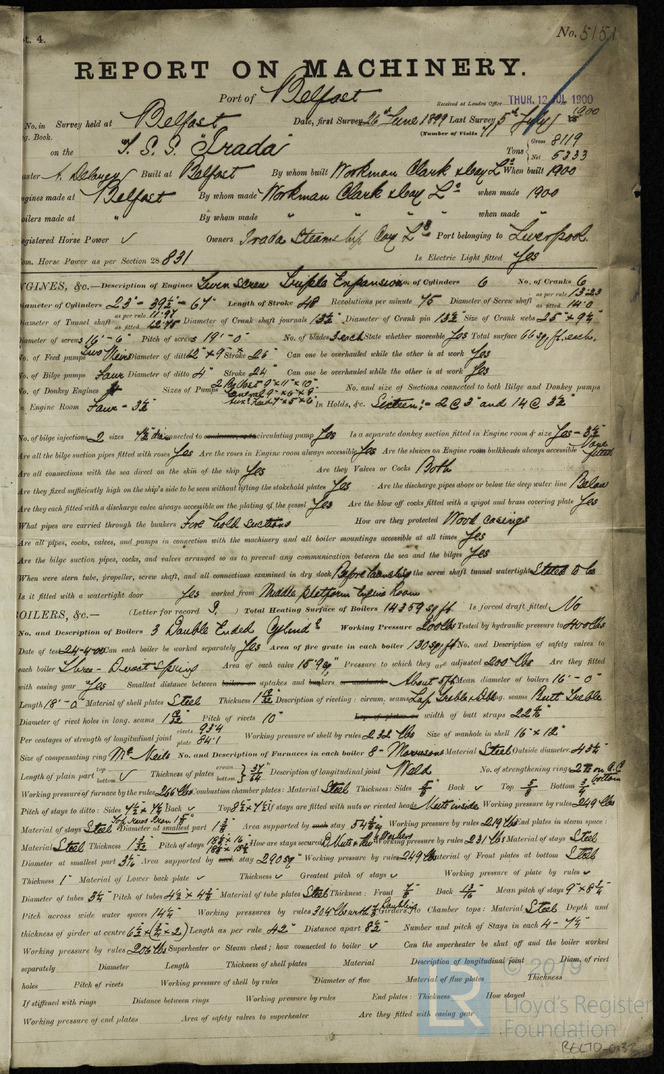 t. 4.
No. 5151
REPORT ON MACHINERY.
Port of Belfast
Received at London Office THUR. 12 JUL 1900
No. in Survey held at Belfast Date, first Survey 26th June 1899 Last Survey 5th July 1900
g. Book. (Number of Visits
on the T.S.S. "Irada" Tons Gross 8119 Net 5333
aster A. Delaney Built at Belfast By whom built Workman Clark & Coy Ld When built 1900
ngines made at Belfast By whom made Workman Clark & Coy Ld when made 1900
oilers made at " By whom made " " " when made "
egistered Horse Power Owners Irada Steamship Coy Ld Port belonging to Liverpool
om. Horse Power as per Section 28 831 Is Electric Light fitted Yes
NGINES, &c.— Description of Engines Twin Screw Triple Expansion No. of Cylinders 6 No. of Cranks 6
Diameter of Cylinders 23"- 39½"- 67" Length of Stroke 48 Revolutions per minute 75 Diameter of Screw shaft as per rule 13.23 as fitted 14.0
Diameter of Tunnel shaft as per rule 11.97 as fitted Diameter of Crank shaft journals 13½" Diameter of Crank pin 13½ Size of Crank webs 25" × 9½"
Diameter of screws 16'-6" Pitch of screws 19'-0" No. of blades 3 each State whether moveable Yes Total surface 66 sq. ft. each.
No. of Feed pumps Two Weirs Diameter of ditto 12" × 9" Stroke Can one be overhauled while the other is at work Yes
No. of Bilge pumps Four Diameter of ditto 4" Stroke 24 Can one be overhauled while the other is at work Yes
No. of Donkey Engines Sizes of Pumps No. and size of Suctions connected to both Bilge and Donkey pumps
n Engine Room Four - 3½ In Holds, &c. Sixteen:- 2 @ 3" and 14 @ 3½"
No. of bilge injections 2 sizes connected to circulating pump Yes Is a separate donkey suction fitted in Engine room & size Yes - 3½"
Are all the bilge suction pipes fitted with roses Yes Are the roses in Engine room always accessible Yes Are the sluices on Engine room bulkheads always accessible
Are all connections with the sea direct on the skin of the ship Yes Are they Valves or Cocks Both
Are they fixed sufficiently high on the ship's side to be seen without lifting the stokehold plates Yes Are the discharge pipes above or below the deep water line Below
Are they each fitted with a discharge valve always accessible on the plating of the vessel Yes Are the blow off cocks fitted with a spigot and brass covering plate Yes
What pipes are carried through the bunkers Fore hold suctions How are they protected Wood casings
Are all pipes, cocks, valves, and pumps in connection with the machinery and all boiler mountings accessible at all times Yes
Are the bilge suction pipes, cocks, and valves arranged so as to prevent any communication between the sea and the bilges Yes
When were stern tube, propeller, screw shaft, and all connections examined in dry dock Before launching Is the screw shaft tunnel watertight Stated to be
Is it fitted with a watertight door Yes worked from Middle platform Engine Room
BOILERS, &c.— (Letter for record S.) Total Heating Surface of Boilers 14359 sq ft Is forced draft fitted No
No. and Description of Boilers 3 Double Ended Working Pressure 200 lbs Tested by hydraulic pressure to 400 lbs
Date of test 24-4-00 Can each boiler be worked separately Yes Area of fire grate in each boiler 130 sq ft No. and Description of safety valves to
each boiler Three - Direct Spring Area of each valve 15.9 sq Pressure to which they are adjusted 200 lbs Are they fitted
with easing gear Yes Smallest distance between boilers or uptakes and bunkers About 5 ft Mean diameter of boilers 16'-0"
Length 18'-0" Material of shell plates Steel Thickness Description of riveting: circum. seams Lap Treble & Dbl long. seams Butt Treble
Diameter of rivet holes in long. seams Pitch of rivets 10" Lap of plates or width of butt straps 22⅝"
Per centages of strength of longitudinal joint rivets 93.4 plate 84.1 Working pressure of shell by rules 232 lbs Size of manhole in shell 16" × 12"
Size of compensating ring No. and Description of Furnaces in each boiler 8 - Morrisons Material Steel Outside diameter
Length of plain part top bottom Thickness of plates crown bottom Description of longitudinal joint Weld No. of strengthening rings
Working pressure of furnace by the rules 266 lbs Combustion chamber plates: Material Steel Thickness: Sides Back Top Bottom
Pitch of stays to ditto: Sides 7½ × 7½ Back Top 8½ × 7½ If stays are fitted with nuts or riveted heads Nuts inside Working pressure by rules 249 lbs
Material of stays Steel Diameter at smallest part Area supported by each stay Working pressure by rules 219 lbs End plates in steam space:
Material Steel Thickness Pitch of stays How are stays secured Working pressure by rules 231 lbs Material of stays Steel
Diameter at smallest part Area supported by each stay 290 sq" Working pressure by rules 249 lbs Material of Front plates at bottom Steel
Thickness 1" Material of Lower back plate Thickness Greatest pitch of stays Working pressure of plate by rules
Diameter of tubes 3¼" Pitch of tubes 4½ × 4½ Material of tube plates Steel Thickness: Front Back Mean pitch of stays
Pitch across wide water spaces 14½" Working pressures by rules 304 lbs Girders to Chamber tops: Material Steel Depth and
thickness of girder at centre Length as per rule 42" Distance apart 8½ Number and pitch of Stays in each 4 - 7½"
Working pressure by rules 206 lbs Superheater or Steam chest; how connected to boiler Can the superheater be shut off and the boiler worked
separately Diameter Length Thickness of shell plates Material Description of longitudinal joint Diam. of rivet
holes Pitch of rivets Working pressure of shell by rules Diameter of flue Material of flue plates Thickness
If stiffened with rings Distance between rings Working pressure by rules End plates: Thickness How stayed
Working pressure of end plates Area of safety valves to superheater Are they fitted with easing gear
© 2019
LR
Lloyd's Register
Foundation